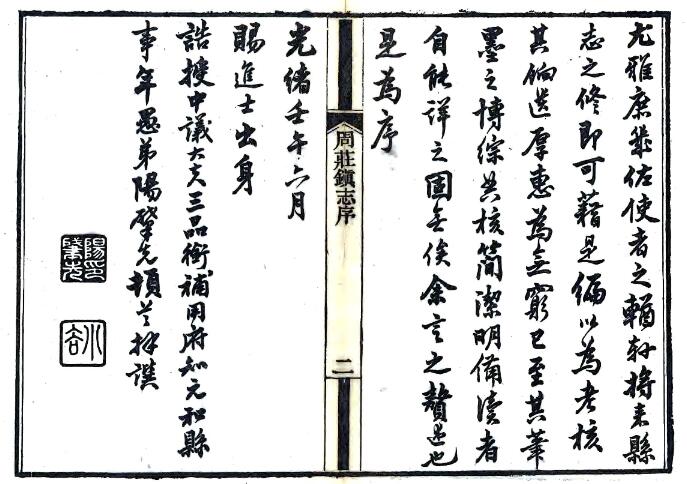 尤雅庶幾佐使者之輶軒將來縣
志之修即可藉是編以為考核
其餉遺厚惠為無窮已至其筆
墨之博綜典核簡潔明備讀者
自能詳之固無俟余言之贅述也
是為序
周莊鎮志序
二
光緒壬午六月
賜進士出身
誥授中議大夫三品銜補用府知元和縣
事年愚弟陽肇先頓首拜譔
陽印肇先